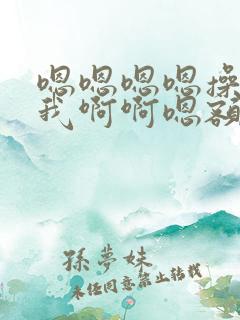 嗯嗯嗯嗯操
我啊啊嗯额
孫夢妹
未经同意禁止转载